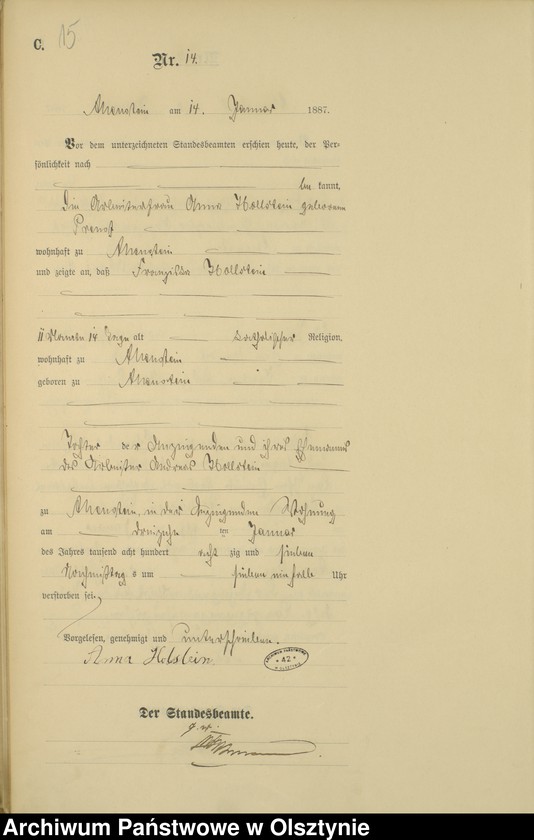 C. 15
Nr. 14.
Allenstein am 14. Januar 1887.
Vor dem unterzeichneten Standesbeamten erschien heute, der Per-
sönlichkeit nach
be kannt,
die Arbeiterfrau Anna Hollstein geborene
wohnhaft zu Allenstein
und zeigte an, daß Franziska Hollstein
11 Monate 14 Tage alt katholischer Religion,
wohnhaft zu Allenstein
geboren zu Allenstein
Tochter der Anzeigenden und ihres Ehemannes
des Arbeiter Andreas Hollstein
zu Allenstein, in der Anzeigenden Wohnung
am dreizehn ten Januar
des Jahres tausend acht hundert acht zig und sieben
Nachmittag s um sieben einhalb Uhr
verstorben sei.
Vorgelesen, genehmigt und unterschrieben.
Anna Holstein
ARCHIWUM PAŃSTWOWE
* A2 *
W OLSZTYNIE
Der Standesbeamte.
Archiwum Państwowe w Olsztynie